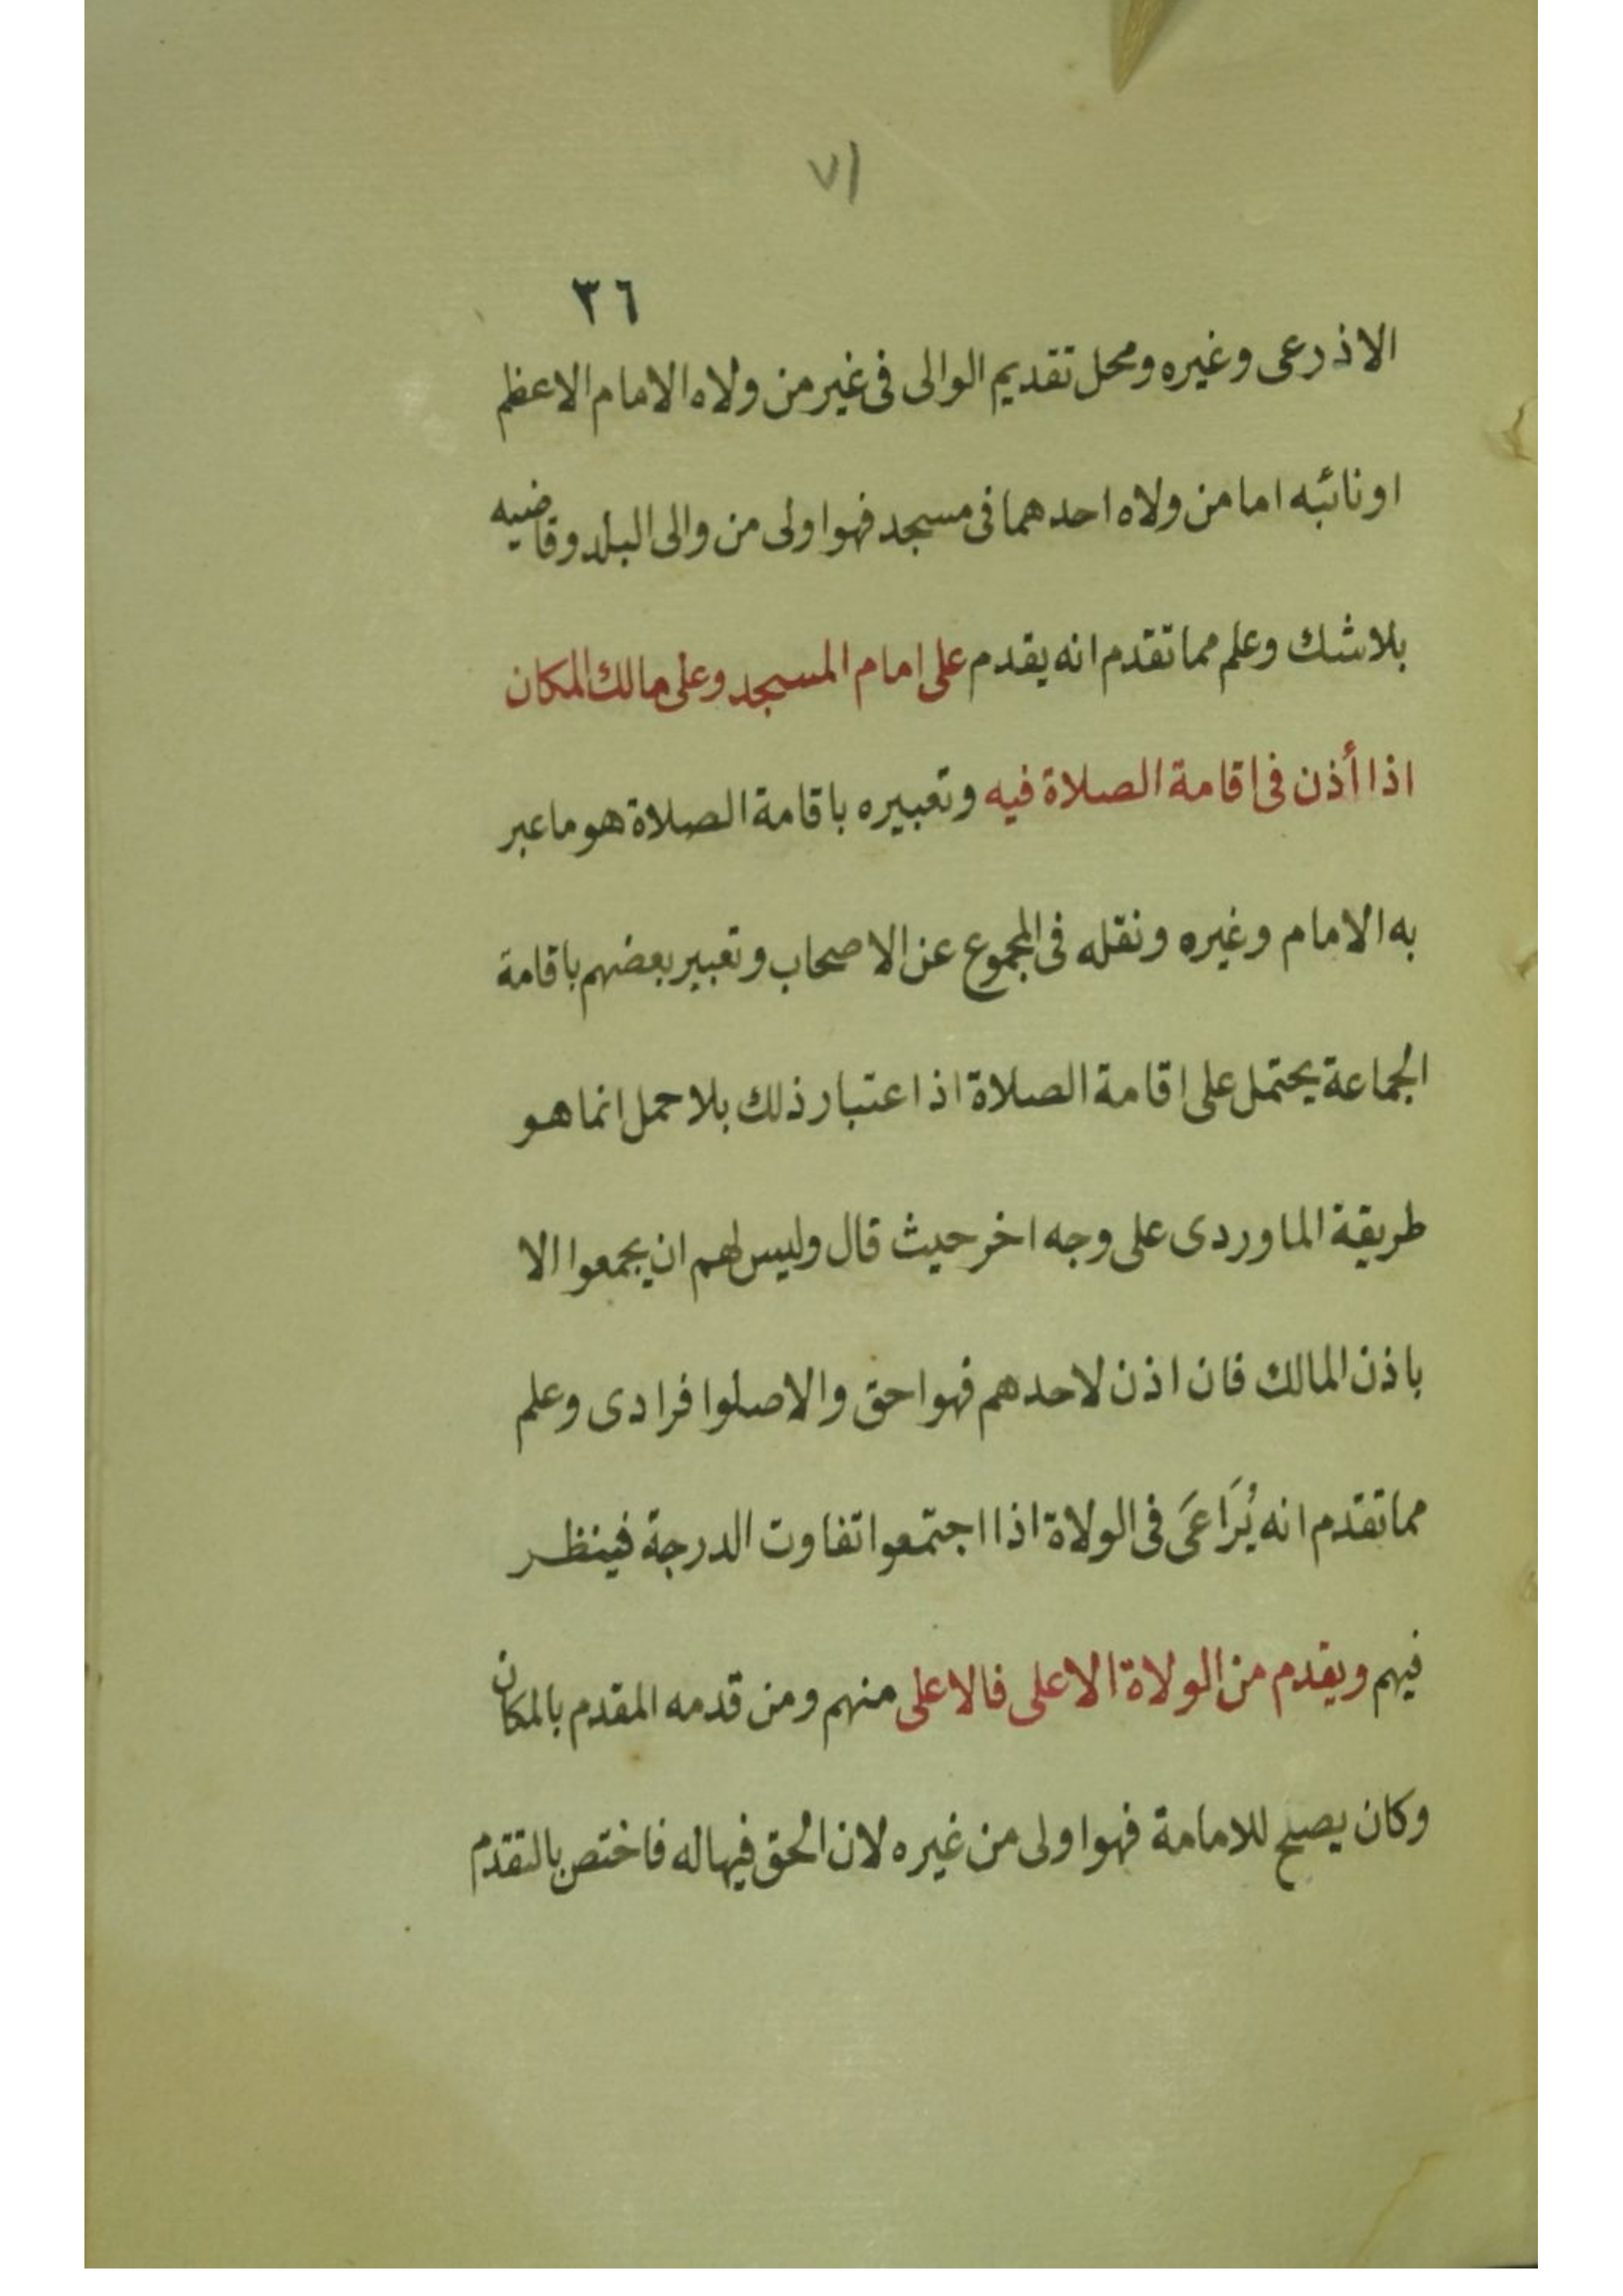 ٧١
٣٦
الاذرعى وغيره ومحل تقديم الوالى فى غير من ولاه الامام الاعظم
او نائبه اما من ولاه احدهما فى مسجد فهو اولى من والى البلد وقاضيه
بلا شك وعلم مما تقدم انه يقدم على امام المسجد وعلى مالك المكان
اذا أذن فى اقامة الصلاة فيه وتعبيره باقامة الصلاة هو ما عبر
به الامام وغيره ونقله فى المجموع عن الاصحاب وتعبير بعضهم باقامة
الجماعة يحتمل على اقامة الصلاة اذ اعتبار ذلك بلا حمل انما هو
طريقة الماوردى على وجه اخر حيث قال وليس لهم ان يجمعوا الا
باذن المالك فان اذن لاحدهم فهو احق والا صلوا فرادى وعلم
مما تقدم انه يُرَاعَى فى الولاة اذا اجتمعوا تفاوت الدرجة فينظر
فيهم ويقدم من الولاة الاعلى فالاعلى منهم ومن قدمه المقدم بالمكان
وكان يصلح للامامة فهو اولى من غيره لان الحق فيها له فاختص بالتقدم